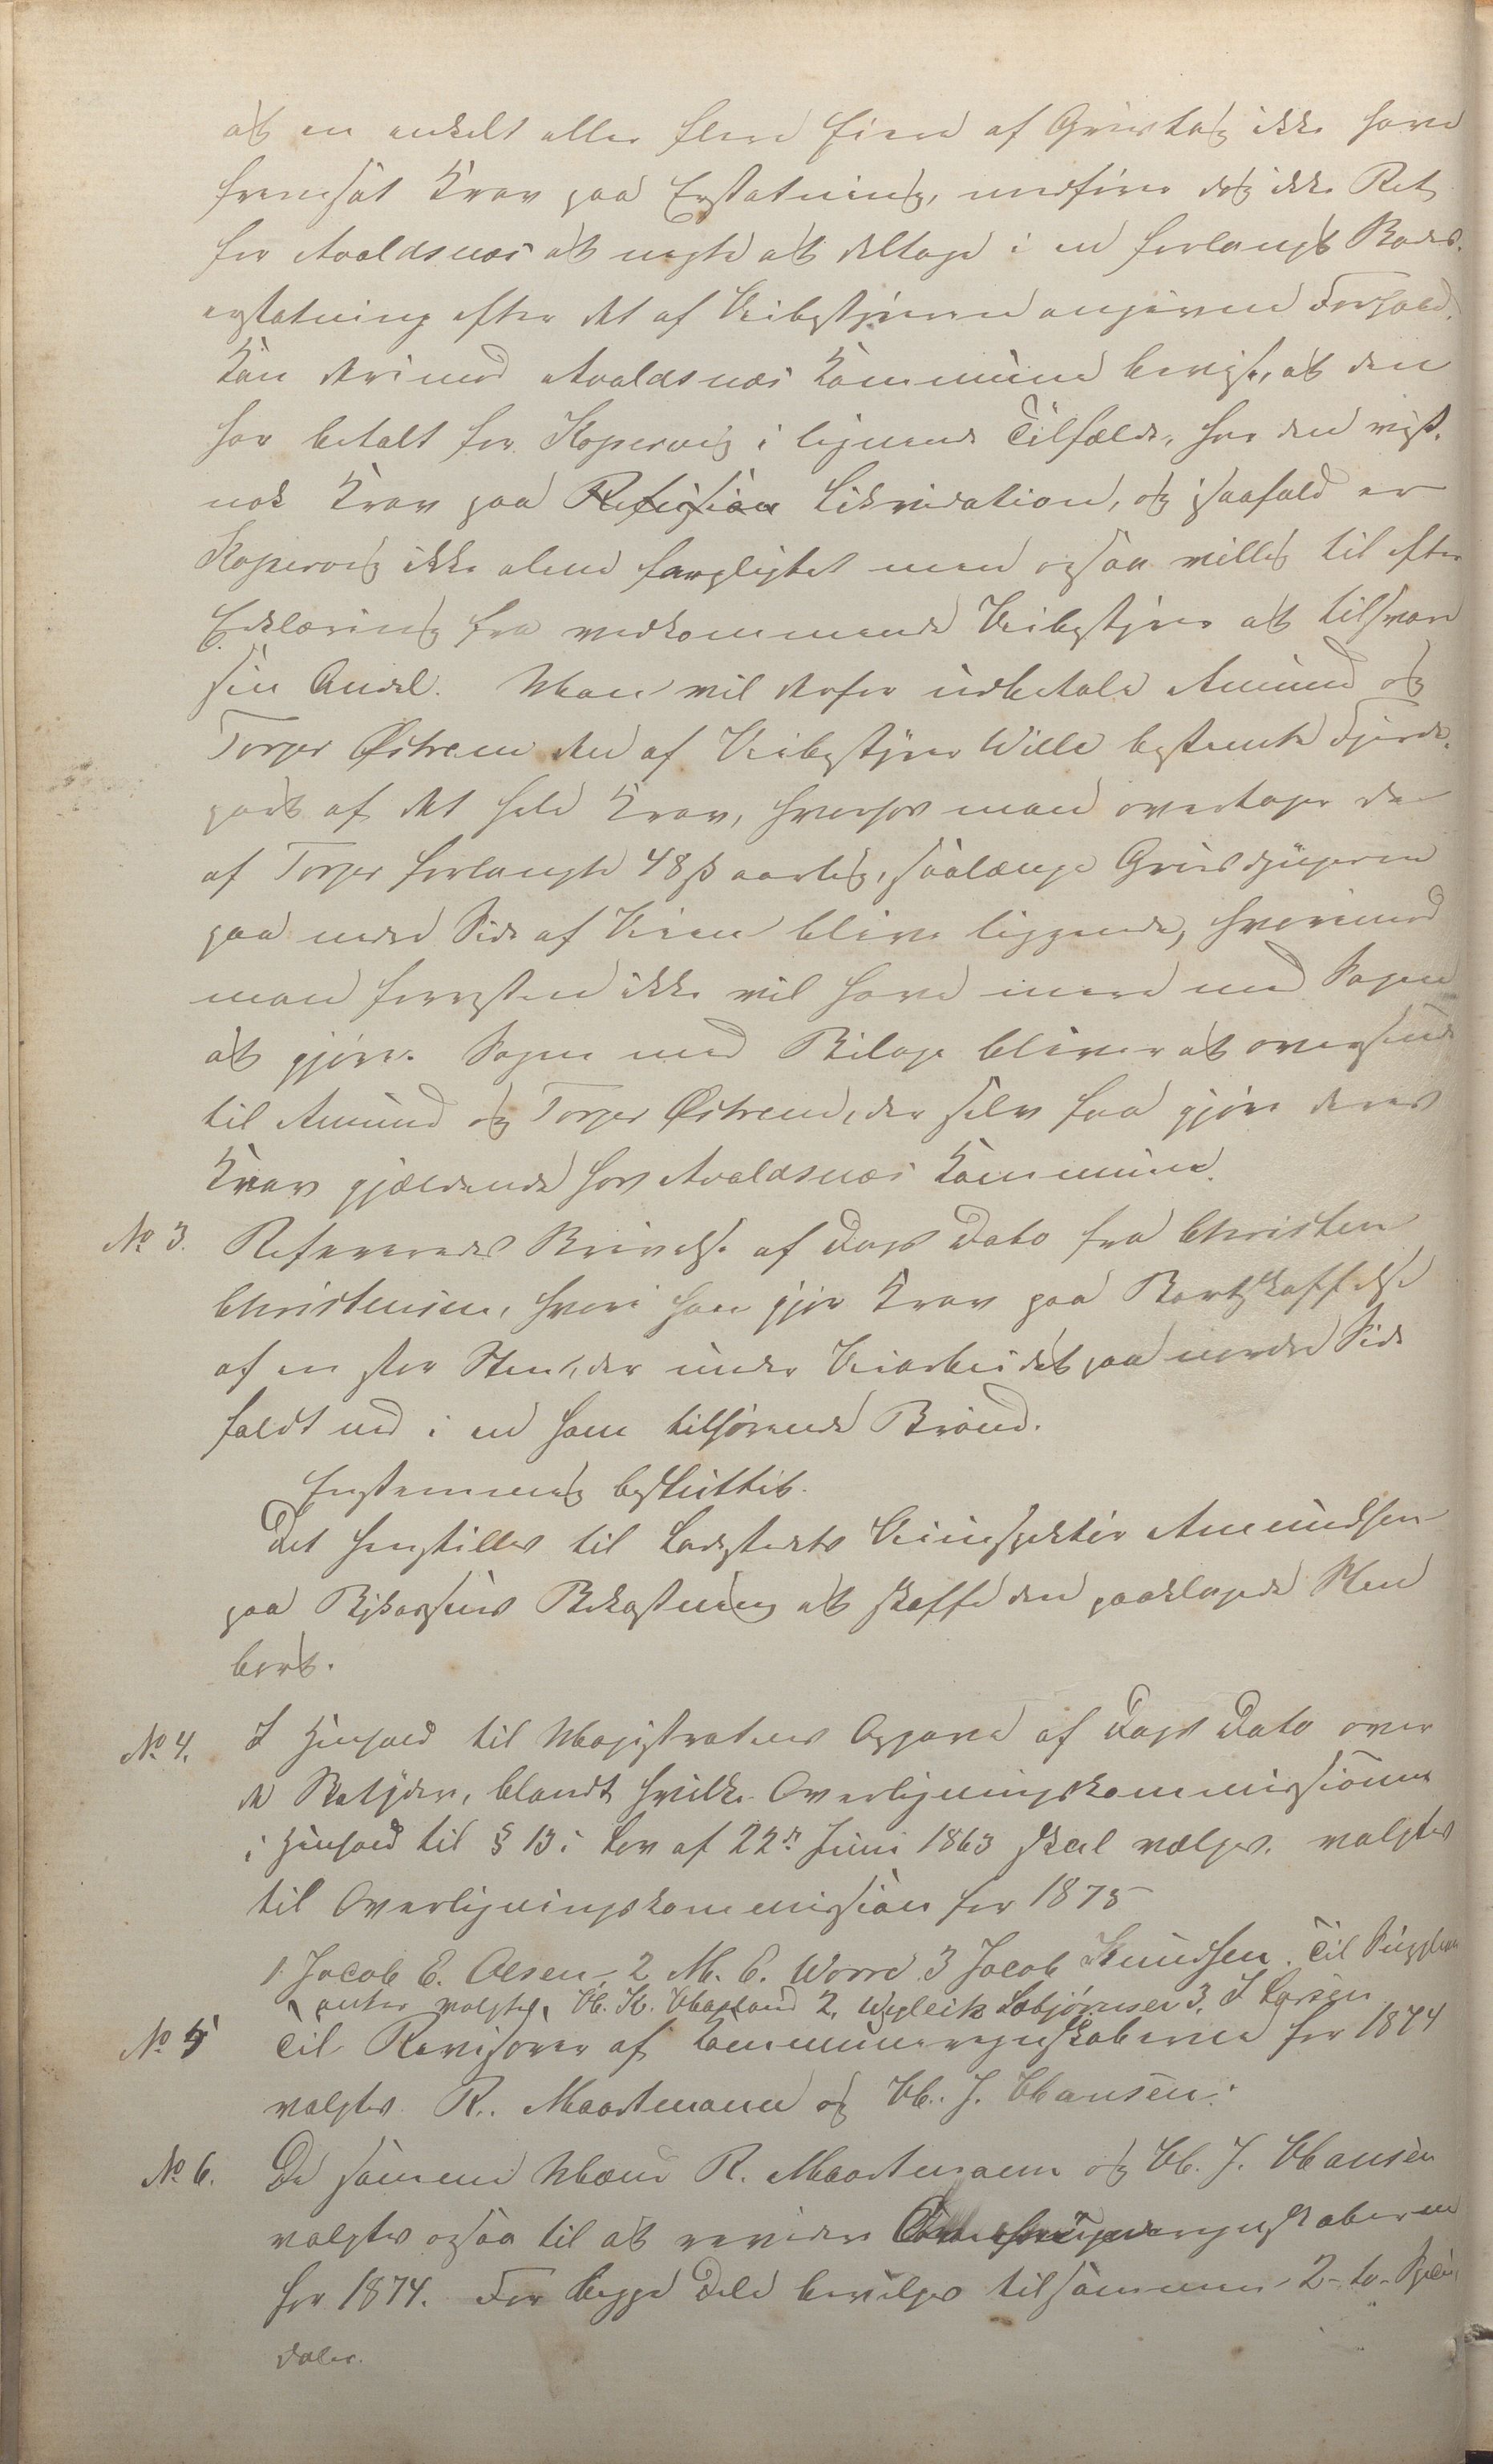 at en enkelt eller flere Eiere af Grustag ikke have
fremsat Krav paa Erstatning, medfører dog ikke Ret
for Avaldsnæs at negte at deltage i en forlangt
erstatning efter det af Veibestyreren angivne Forhold.
Kan derimod Avaldsnæs Kommune bevise, at den
har betalt for Kopervig i lignende Tilfælde, har den vist-
nok Krav paa Refusion Likvidation, og isaafald er
Kopervig ikke alene forpligtet men ogsaa villig til efter
Erklæring fra vedkommende Veibestyrer at tilsvare
sin Andel. Man vil derfor udbetale Amund og
Torger Østrem den af Veibestyrer Wille bestemte Fjerde-
part af det hele Krav, hvorhos man overtager de
af Torger forlangte 48 ß aarlig, saalænge Grusdyngerne
paa nedre Side af Veien blive liggende, hvorimod
man forresten ikke vil have mere med Sagen
at gjøre. Sagen med Bilage bliver at oversende
til Amund og Torger Østrem, der selv faa gjøre deres
Krav gjældende hos Avaldsnæs Kommune.
No 3. Refereredes Skrivelse af Dags Dato fra Christen
Christensen, hvori han gjør Krav paa Bortskaffelse
af en stor Sten, der under Veiarbeidet paa nordre Side
faldt ned i en ham tilhørende Brønd.
Enstemmig besluttet.
Det henstilles til Ladestedets Veiinspektør Amundsen
paa Bykassens Bekostning at skaffe den paaklagede Sten
bort.
No 4. I Henhold til Magistratens Opgave af Dags Dato over
de Skatydere, blandt hvilke Overligningskommissionen
i Henhold til § 13 i Lov af 22de Juni 1863 skal vælges, valgtes
til Overligningskommission for 1875
1. Jacob E. Olsen, 2 M. E. Worre 3 Jacob Knudsen. Til Supple
anter valgtes, 1. Chr. K. 2, 3. I Larsen
No 5 Til Revisorer af Kommuneregnskaberne for 1874
valgtes R. Maartmann og Chr. J. Hansen.
No 6. De samme Mænd R. Maartmann og Chr. J. Hansen
valgtes ogsaa til at revidere regnskaberne
for 1874. For begge Dele bevilges tilsammen 2 - to - Specie
daler.